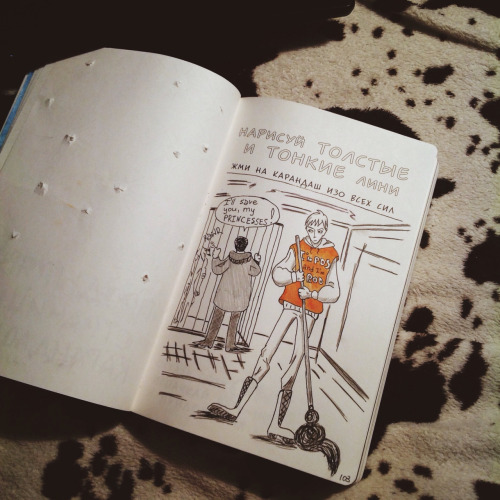 НАРИСУЙ ТОЛСТЫЕ
И ТОНКИЕ ЛИНИ
ЖМИ НА КАРАНДАШ ИЗО ВСЕХ СИЛ
I'll save
you, my
PRINCESSES!
108